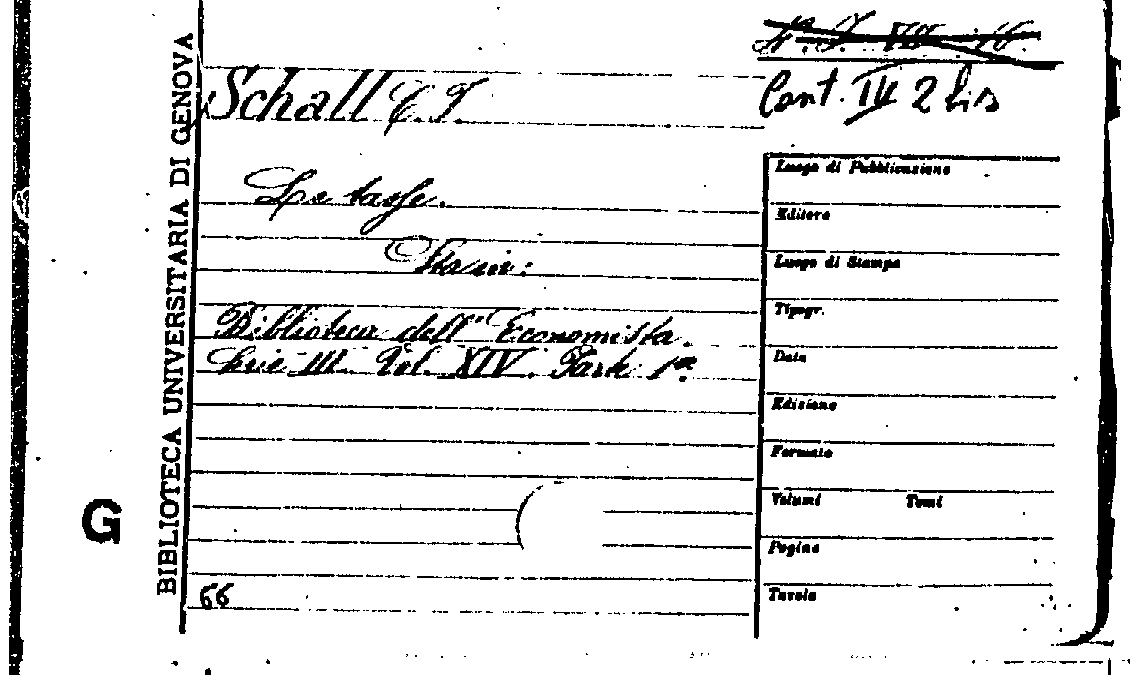 Cont. IV 2 bis
Schall C. F.
Le tasse.
Sta in:
Biblioteca dell'Economista.
Serie III. Vol. XIV. Parte 1ª.
66
Luogo di Pubblicazione
Editore
Luogo di Stampa
Tipogr.
Data
Edizione
Formato
Volumi Tomi
Pagine
Tavole
BIBLIOTECA UNIVERSITARIA DI GENOVA
G